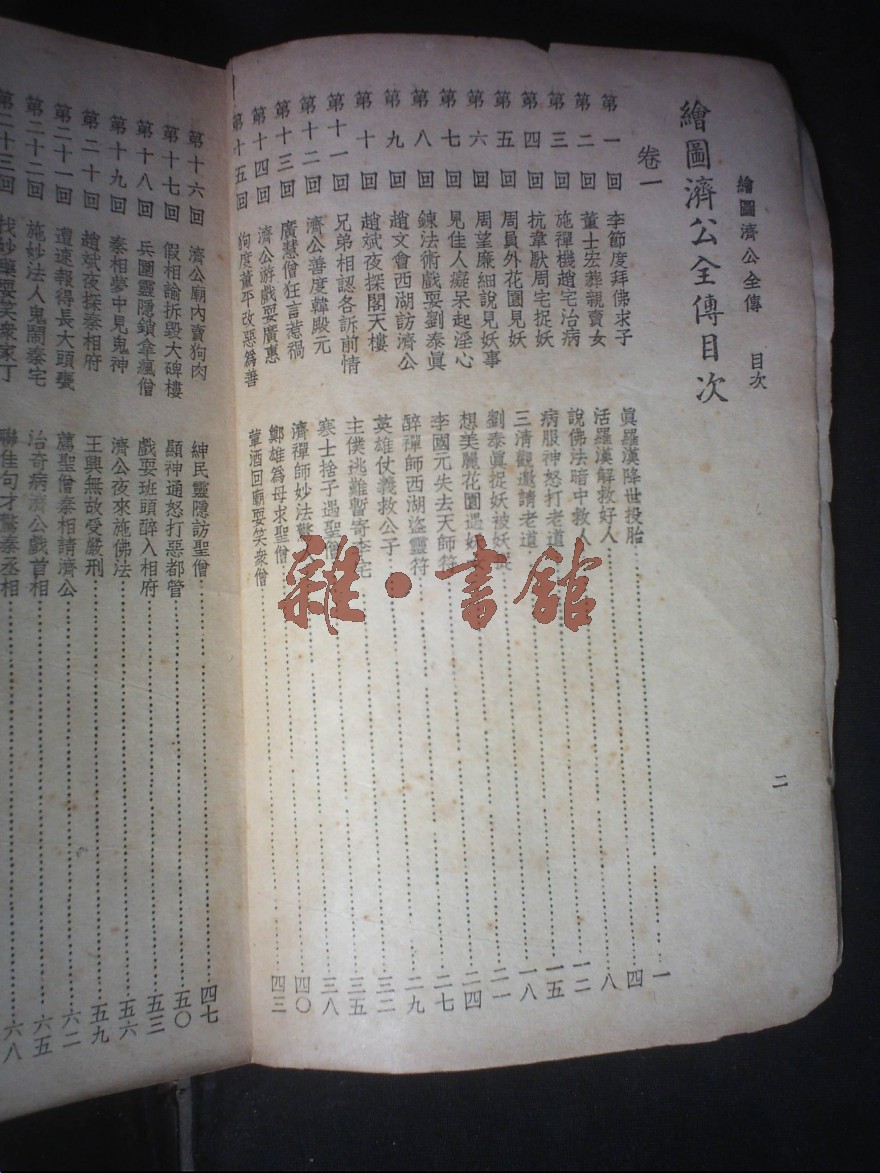 繪圖濟公全傳 目次 二
繪圖濟公全傳目次
卷一
第一回 李節度拜佛求子 眞羅漢降世投胎 一
第二回 董士宏葬親賣女 活羅漢解救好人 四
第三回 施禪機趙宅治病 說佛法暗中救人 八
第四回 抗韋馱周宅捉妖 病服神怒打老道 一二
第五回 周員外花園見妖 三清觀邀請老道 一五
第六回 周望廉細說見妖事 劉泰眞捉妖被妖 一八
第七回 見佳人癡呆起淫心 想美麗花園遇妖 二一
第八回 鍊法術戲耍劉泰眞 李國元失去天師符 二四
第九回 趙文會西湖訪濟公 醉禪師西湖盜靈符 二七
第十回 趙斌夜探閣天樓 英雄仗義救公子 二九
第十一回 兄弟相認各訴前情 主僕逃難暫寄李宅 三二
第十二回 濟公善度韓殿元 寒士捨子遇聖僧 三五
第十三回 廣慧僧狂言惹禍 濟禪師妙法 三八
第十四回 濟公游戲耍廣惠 鄭雄爲母求聖僧 四〇
第十五回 狗度董平改惡爲善 葷酒回廟耍笑衆僧 四三
第十六回 濟公廟內賣狗肉 紳民靈隱訪聖僧 四七
第十七回 假相諭拆毀大碑樓 顯神通怒打惡都管 五〇
第十八回 兵圍靈隱鎖拿瘋僧 戲耍班頭醉入相府 五三
第十九回 秦相夢中見鬼神 濟公夜來施佛法 五六
第二十回 趙斌夜探秦相府 王興無故受嚴刑 五九
第二十一回 遭速報得長大頭甕 薦聖僧秦相請濟公 六二
第二十二回 施妙法人鬼鬧秦宅 治奇病濟公戲首相 六五
第二十三回 找妙藥耍笑衆家丁 聯佳句才驚秦丞相 六八
雜·書館